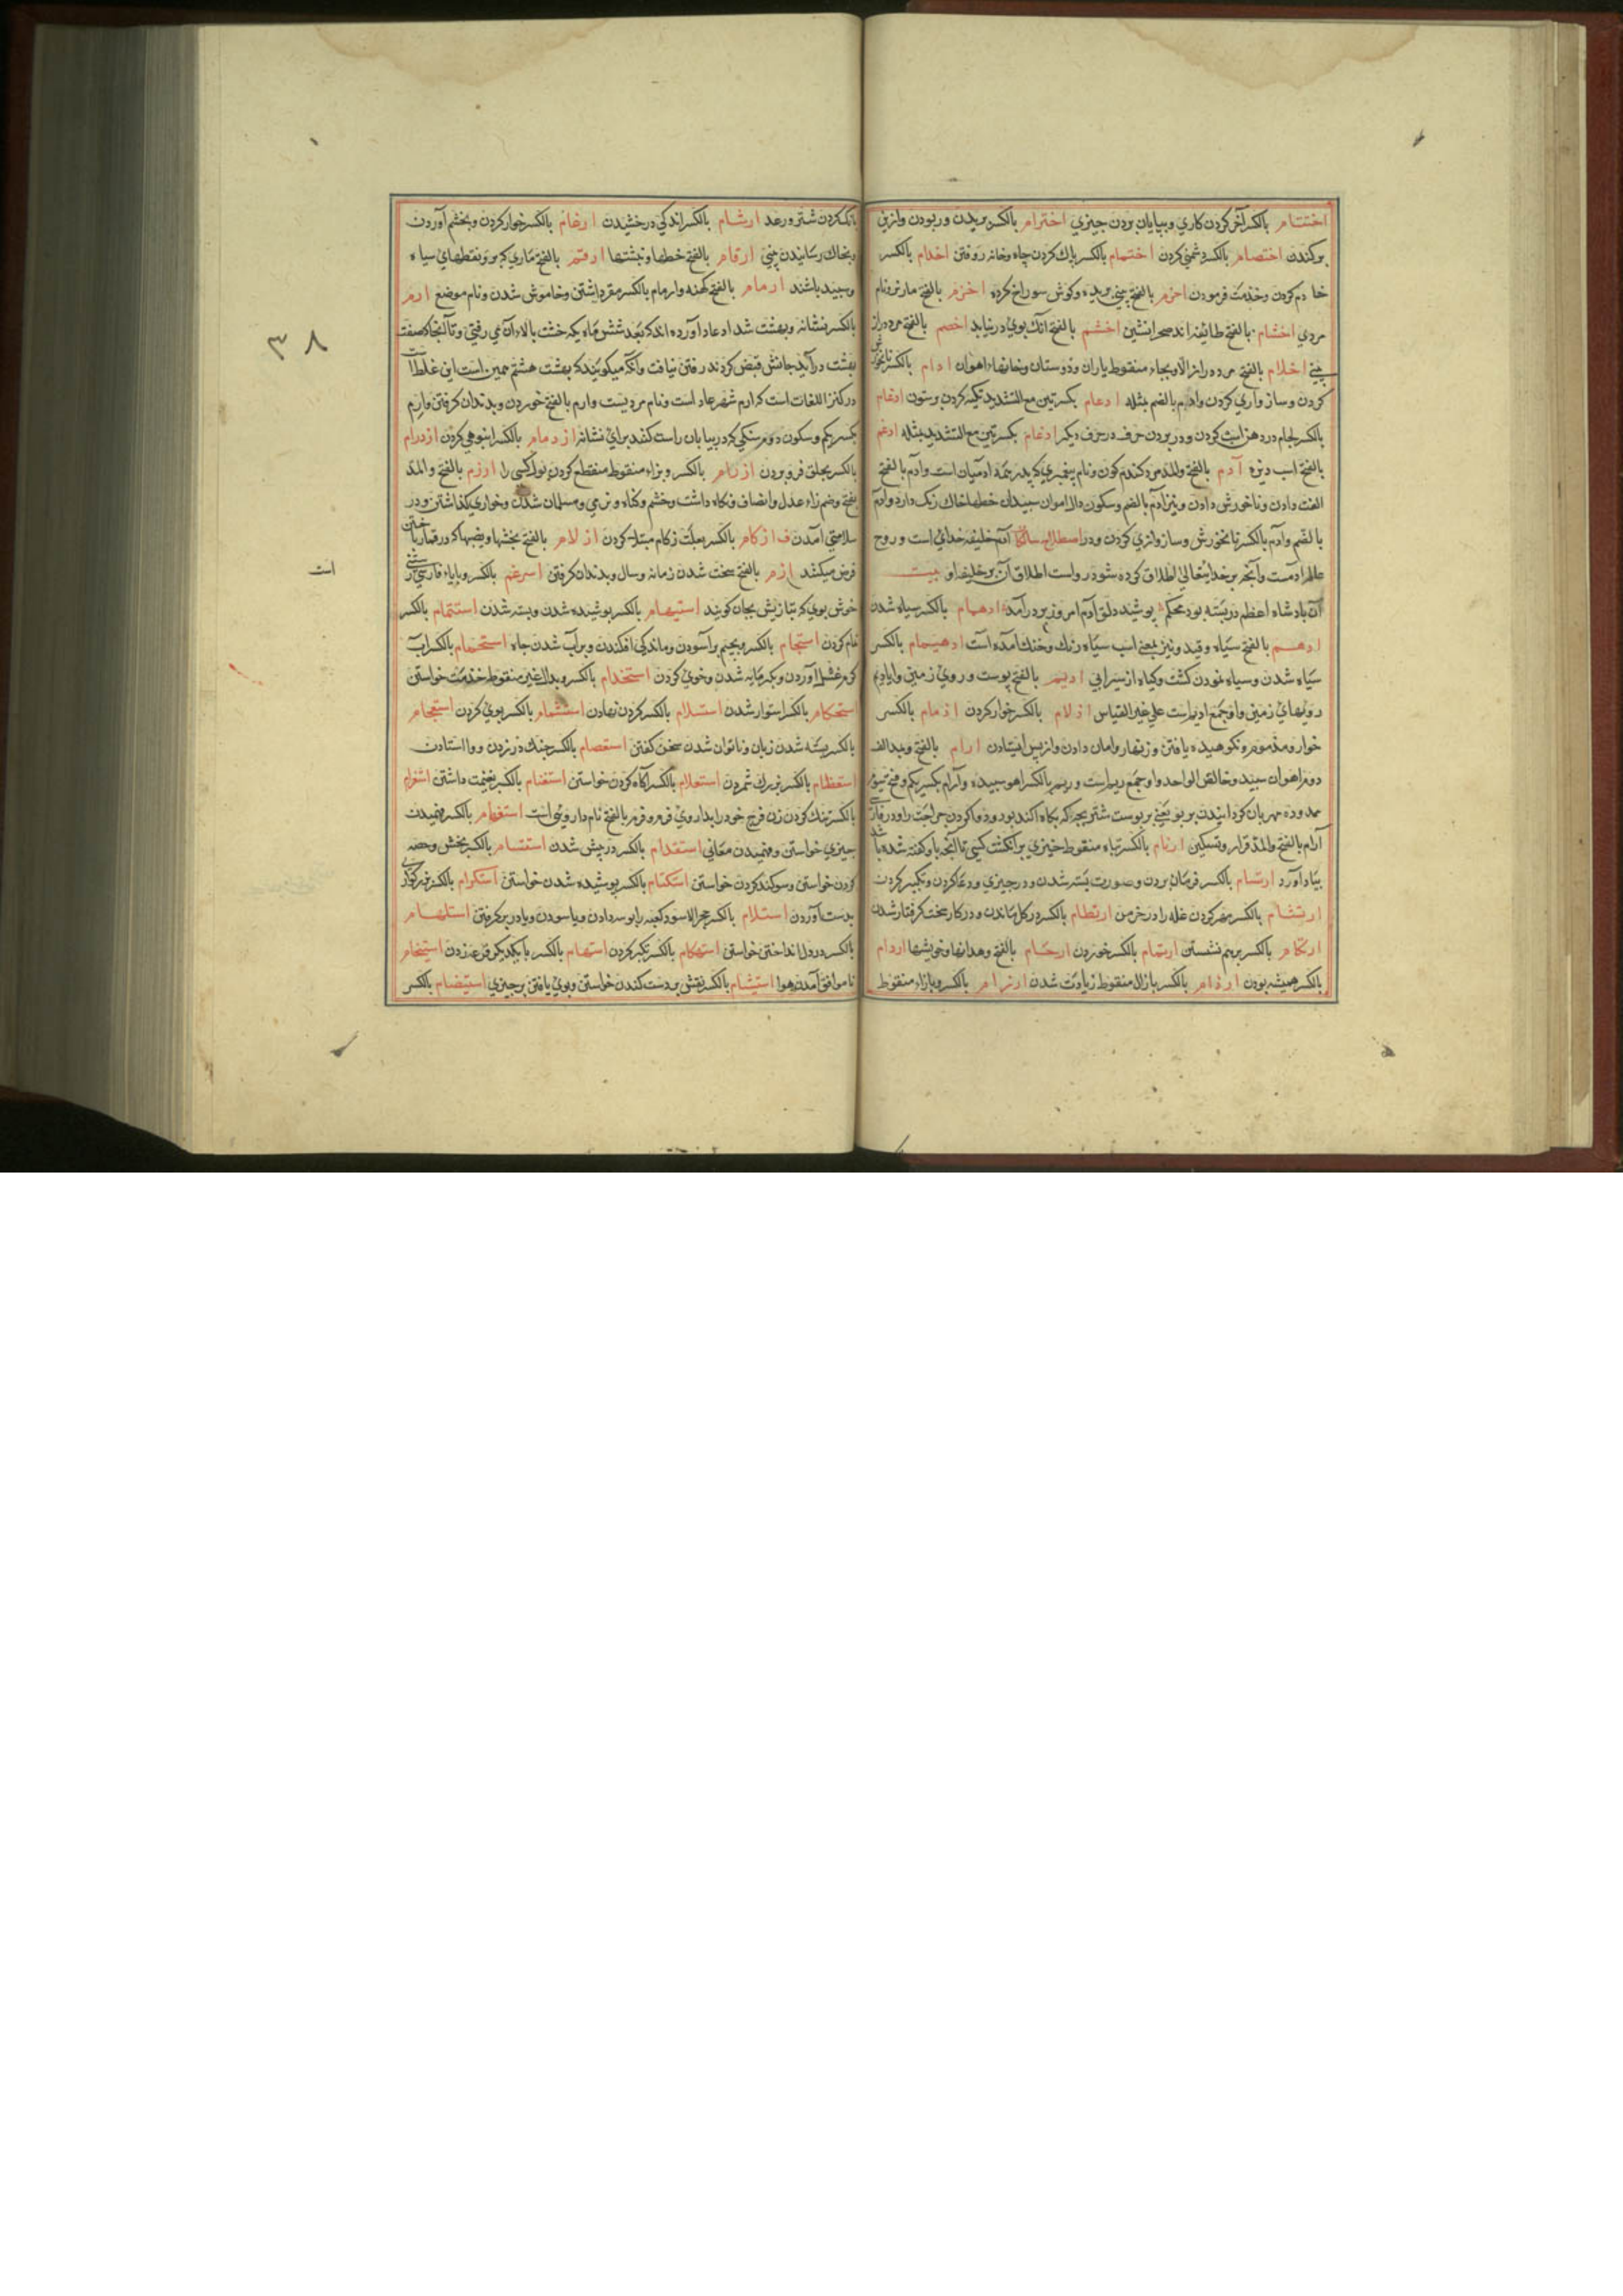 اختتام بالکسر آخر کردن کاری وبپایان بردن چیزی اخترام بالکسر بریدن وربودن وازبن
برکندن اختصام بالکسر دشمنی کردن اختمام بالکسر پاک کردن چاه وخانه روفتن اخدام بالکسر
خادم کردن وخدمت فرمودن اخرم بالفتح بینی بریده وکوش سوراخ کرده اخزم بالفتح مار نر ونام
مردی اخشام بالفتح طائفه اند صحرا نشین اخشم بالفتح آنک بوی در نیابد اخصم بالفتح مرد دراز
بینی اخلام بالفتح یاران ودوستان وخانهاء اهوان ادام بالکسر نانخورش
کردن وساز واری کردن بالضم مثله ادعام بکسرتین مع التشدید تکیه کردن برستون ادغام
بالکسر لجام در دهن اسب کردن ودر بردن حرف در حرف دیکر ادغام بکسرتین مع التشدید مثله ادغم
بالفتح اسب دیزه آدم بالفتح والمد مرد کندم کون ونام پیغمبری که پدر جمله آدمیان است وآدم بالفتح
الفت دادن ونانخورش دادن ونیز ادم بالضم وسکون دال اهوان سپید که خطها خاک رنک دارد وادم
بالضم وادم بالکسر نانخورش وساز واری کردن ودر اصطلاح آدم خلیفه خدای است وروح
عالم آدمست وآنچه بر خدایتعالی اطلاق کرده شود رواست اطلاق آن بر خلیفه او بیت
آن پادشاه اعظم در بسته بود محکم پوشید دلق آدم امروز بر در آمد ادهمام بالکسر سیاه شدن
ادهم بالفتح سیاه وقید ونیز بمعنی اسب سیاه رنک وخنک آمده است ادهیمام بالکسر
سیاه شدن وسیاه نمودن کشت وکیاه از سیرابی ادیم بالفتح پوست وروی زمین
رویهای زمین واو جمع ادیم است علی غیر القیاس اذلام بالکسر خوار کردن اذمام بالکسر
خوار ومذموم ونکوهیده یافتن وزنهار وامان دادن واز پس ایستادن ارام بالفتح وبد الف
دوم اهوان سپید وخالص الواحد واو جمع ریم است وریم بالکسر اهو سپیده وآرام بکسر یکم وفتح
ممدوده مهربان کردانیدن بر بو یعنی بر پوست شتر بچه که بکاه اکنده بود ودوا کردن جراحت را ودر فارسی
آرام بالفتح والمد قرار وتسکین ارتام بالکسر بتاء منقوط چیزی بر انکشت کسی تا آنچه باو کفته شده باشد
بیاد آورد ارتسام بالکسر فرمان بردن وصورت بسته شدن ودر چیزی ودعا کردن وتکبیر کردن
ارتشام بالکسر مهر کردن غله را در خرمن ارتطام بالکسر در کل ماندن ودر کار سخت کرفتار شدن
ارتکام بالکسر برهم نشستن ارتمام بالکسر خوردن ارحام بالفتح وخویشها اردام
بالکسر همیشه بودن ارذام بالکسر با ذال منقوط زیادت شدن ارزام بالکسر وبازاء منقوط
بانک کردن شتر ورعد ارشام بالکسر اندکی درخشیدن ارغام بالکسر خوار کردن وبخشم آوردن
وبخاک رسانیدن بینی ارقام بالفتح خطها ونبشتها ارقم بالفتح ماری که برو نقطهای سیاه
وسپید باشند ارمام بالفتح کهنه وارمام بالکسر مقرر داشتن وخاموش شدن ونام موضع ارم
بالکسر نشانه وبهشت شداد عاد آورده اند که بعد شش ماه یک خشت بالاء آن می رفتی وتا آنجا که صفت
بهشت درآید جانش قبض کردند رفتن نیافت وآنکه میکویند که بهشت هشتم همین است این غلط است
در کنز اللغات است که ارم شهر عاد است ونام مردیست وارم بالفتح خوردن وبدندان کرفتن وارم
بکسر یکم وسکون دوم سنکی که در بیابان راست کنند برای نشان ازدمام بالکسر انبوهی کردن ازدرام
بالکسر بحلق فرو بردن ازرام بالکسر وبزاء منقوط منقطع کردن بول کسی را ازرم بالفتح والمد
بفتح وضم زاء عدل وانصاف ونکاه داشت وخشم وکناه ونرمی ومسلمان شدن وخواری کذاشتن ودر
سلامتی آمدن ف ازکام بالکسر بعلت زکام مبتلا کردن ازلام بالفتح
قرض میکشد ازم بالفتح سخت شدن زمانه وسال وبدندان کرفتن اسپرغم بالکسر وبا باء فارسی
خوش بوی که بتازیش ریحان کویند استبهام بالکسر پوشیده شدن وبسته شدن استتمام بالکسر
تمام کردن استجمام بالکسر وبجیم بر آسودن وماندکی افکندن وبرآب شدن چاه استحمام بالکسر آب
کرم غسل آوردن وبکرمابه شدن وخوی کردن استخدام بالکسر وبدال غیر منقوط خدمت خواستن
استحکام بالکسر استوار شدن استسلام بالکسر کردن نهادن استشمام بالکسر بوی کردن استعجام
بالکسر بسته شدن زبان وناتوان شدن سخن کفتن استعصام بالکسر چنک در زدن ووا استادن
استعظام بالکسر بزرک شمردن استعلام بالکسر آکاه کردن خواستن استغنام بالکسر بغنیمت داشتن استفرام
بالکسر تنک کردن زن فرج خود را بداروی فرم وفرم بالفتح نام داروی است استفهام بالکسر فهمیدن
چیزی خواستن وفهمیدن معانی استقدام بالکسر در پیش شدن استقسام بالکسر بخش وحصه
کردن خواستن وسوکند کردن خواستن استکتام بالکسر پوشیده شدن خواستن استکرام بالکسر
بدست آوردن استلام بالکسر حجر الاسود کعبه را بوسه دادن وپا سودن وبادر بر کرفتن استلهام
بالکسر در دل انداختن خواستن استهکام بالکسر تکبر کردن استهام بالکسر با یکدیکر قرعه زدن استیخام
ناموافق آمدن هوا استیشام بالکسر نقش بردست کندن خواستن وبوی یافتن بر چیزی استیضام بالکسر
٣٨
است